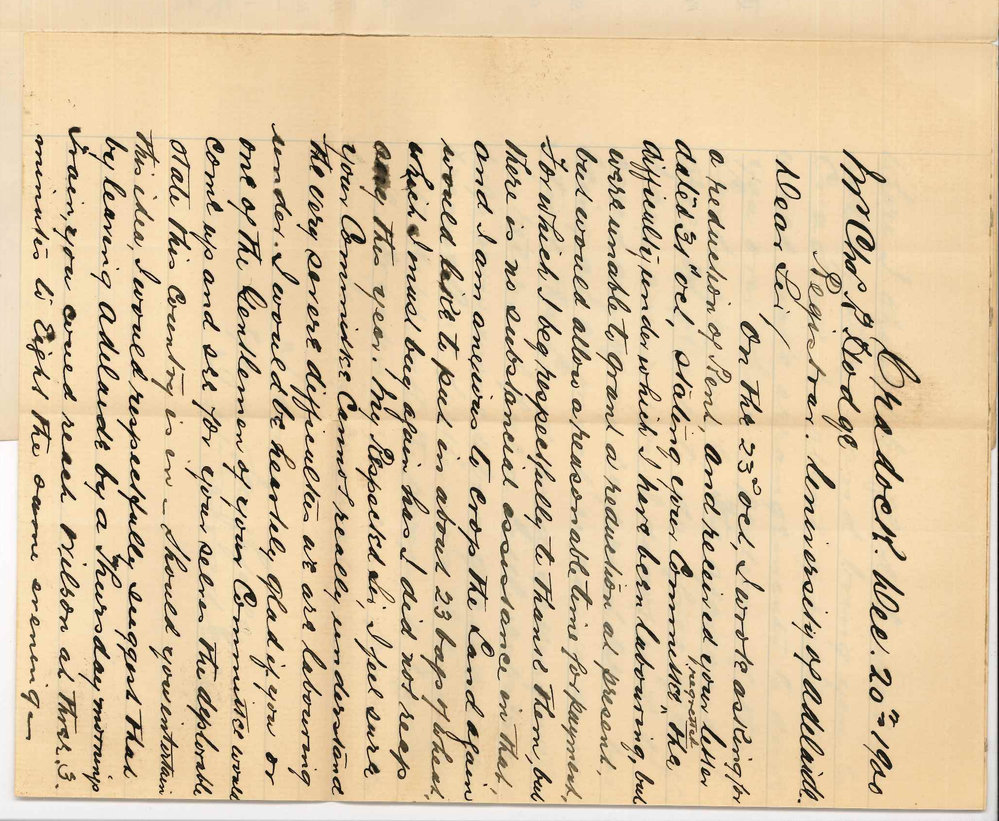 Cradock. Dec. 20th 1900
Mr Chas R Hodge
Registrar. University of Adelaide.
Dear Sir,
On the 23d Oct, I wrote asking for
a reduction of Rent and received your letter
dated 31st Oct, stating your Committee, regretted the
difficulty under which I have been labouring, but
were unable to grant a reduction at present,
but would allow a reasonable time for payment,
For which I beg respectfully to thank them, but
there is no substancial assistance in that,
and I am anxious to crop the Land again
would like to put in about 23 bags of wheat,
which I must buy again has I did not reap
any this year. My Respected Sir, I feel sure
your Committee Cannot really understand
the very severe difficulties we are labouring
under. I would be heartily glad if you or
one of the Gentlemen of your Committee would
come up and see for your selves the deplorable
state this Country is in – Should you entertain
this idea, I would respectfully suggest that
by leaving Adelaide by a Thursday mornings
Train, you could reach Wilson at three. 3
minutes to Eight the same evening –